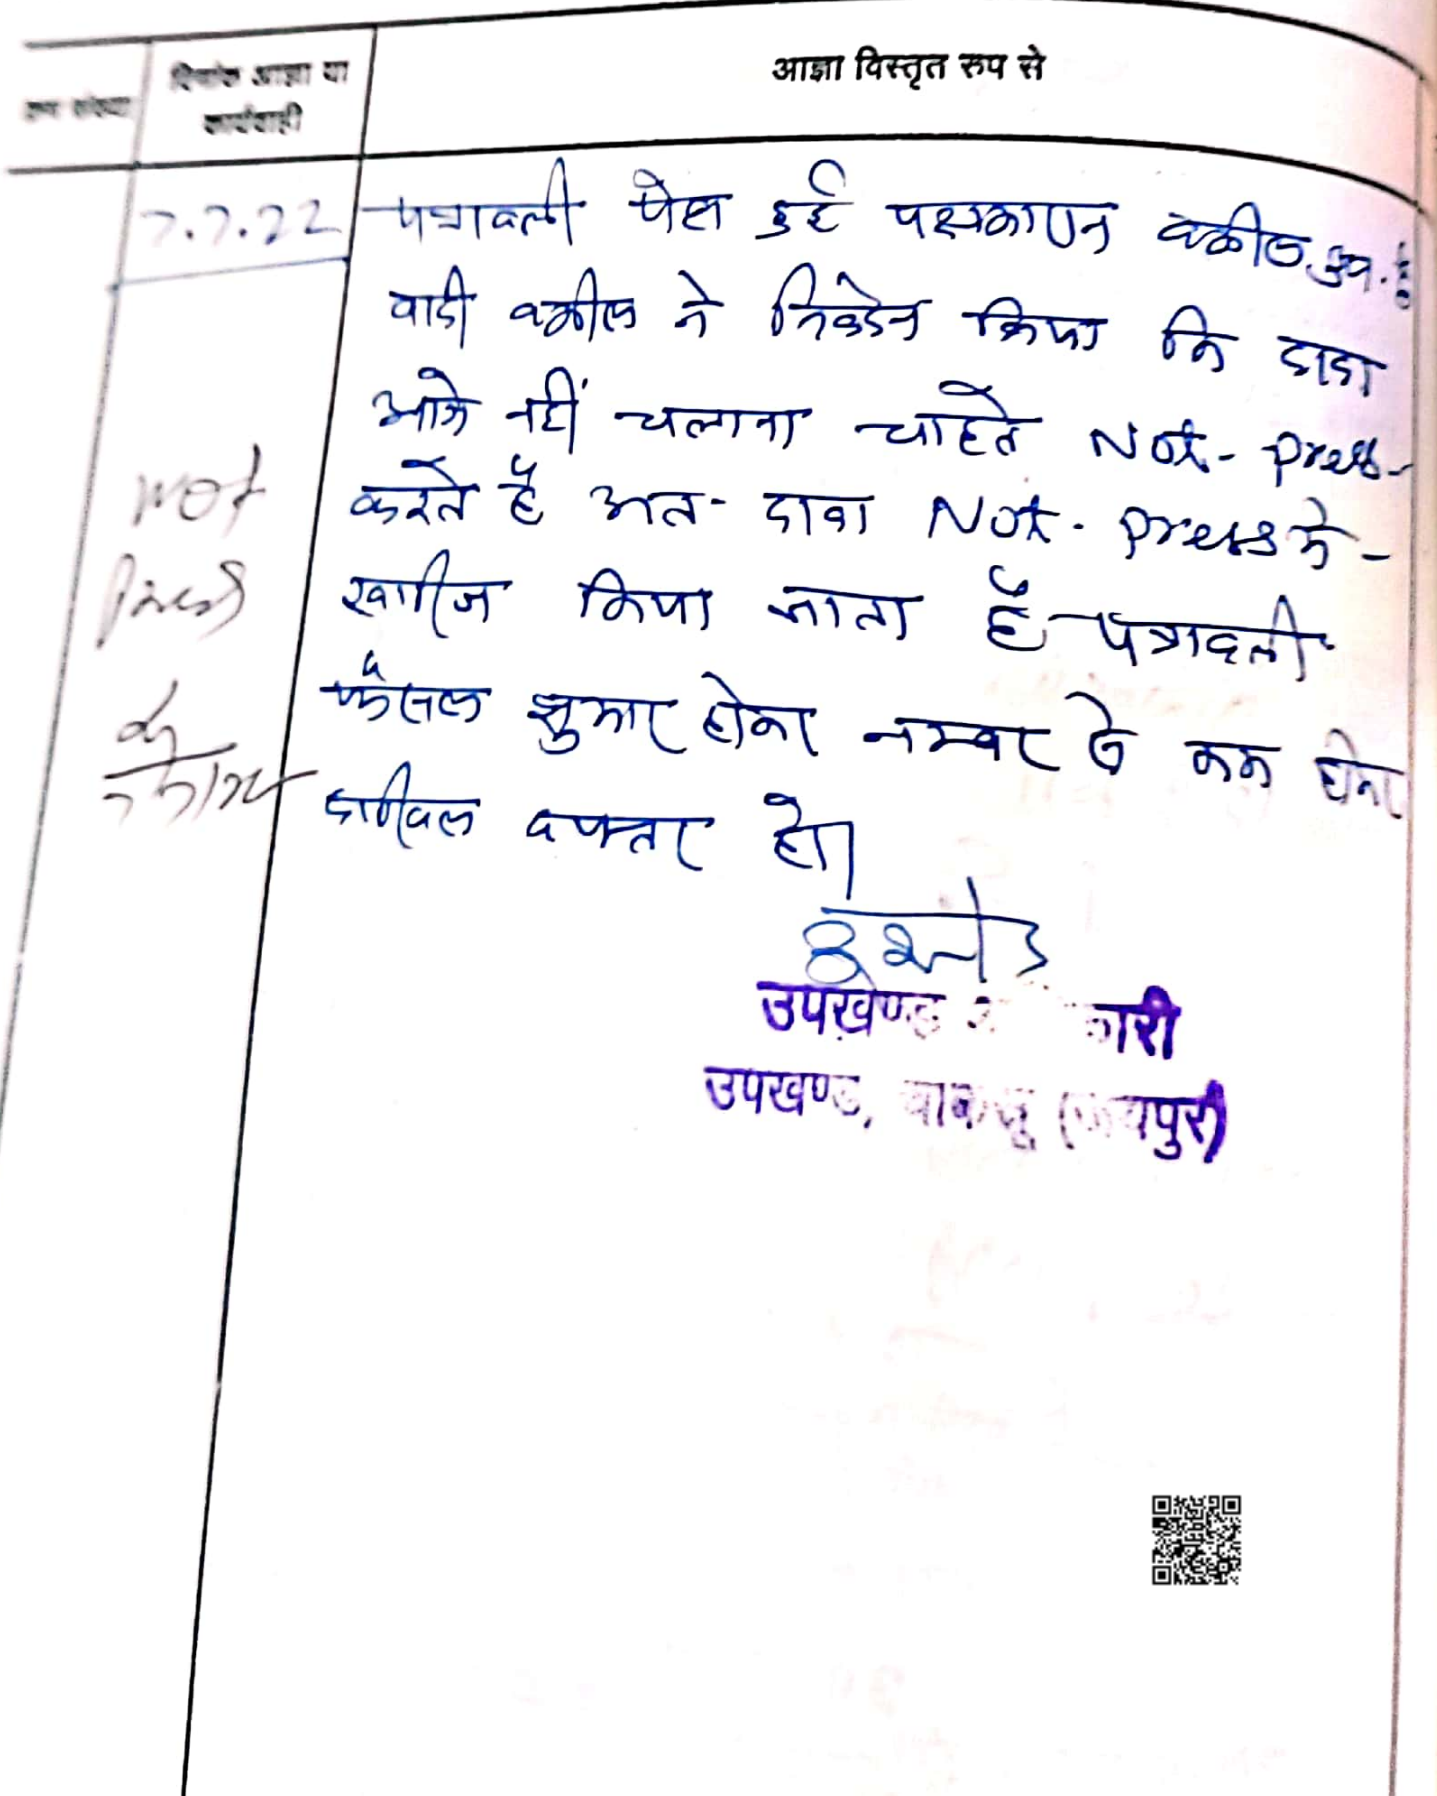 क्रम संख्या
दिनांक आज्ञा या
कार्यवाही
आज्ञा विस्तृत रूप से
7.7.22
पत्रावली पेश हुई पक्षकारान वकील उप. है
वादी वकील ने निवेदन किया कि दावा
आगे नहीं चलाना चाहते Not- press-
करते है अत- दावा Not- press मे-
खारीज किया जाता है पत्रावली
फैसल शुमार होकर नम्बर से कम होकर
दाखिल दफ्तर हो।
Not
Press
उपखण्ड कारी
उपखण्ड, चाकसू (जयपुर)